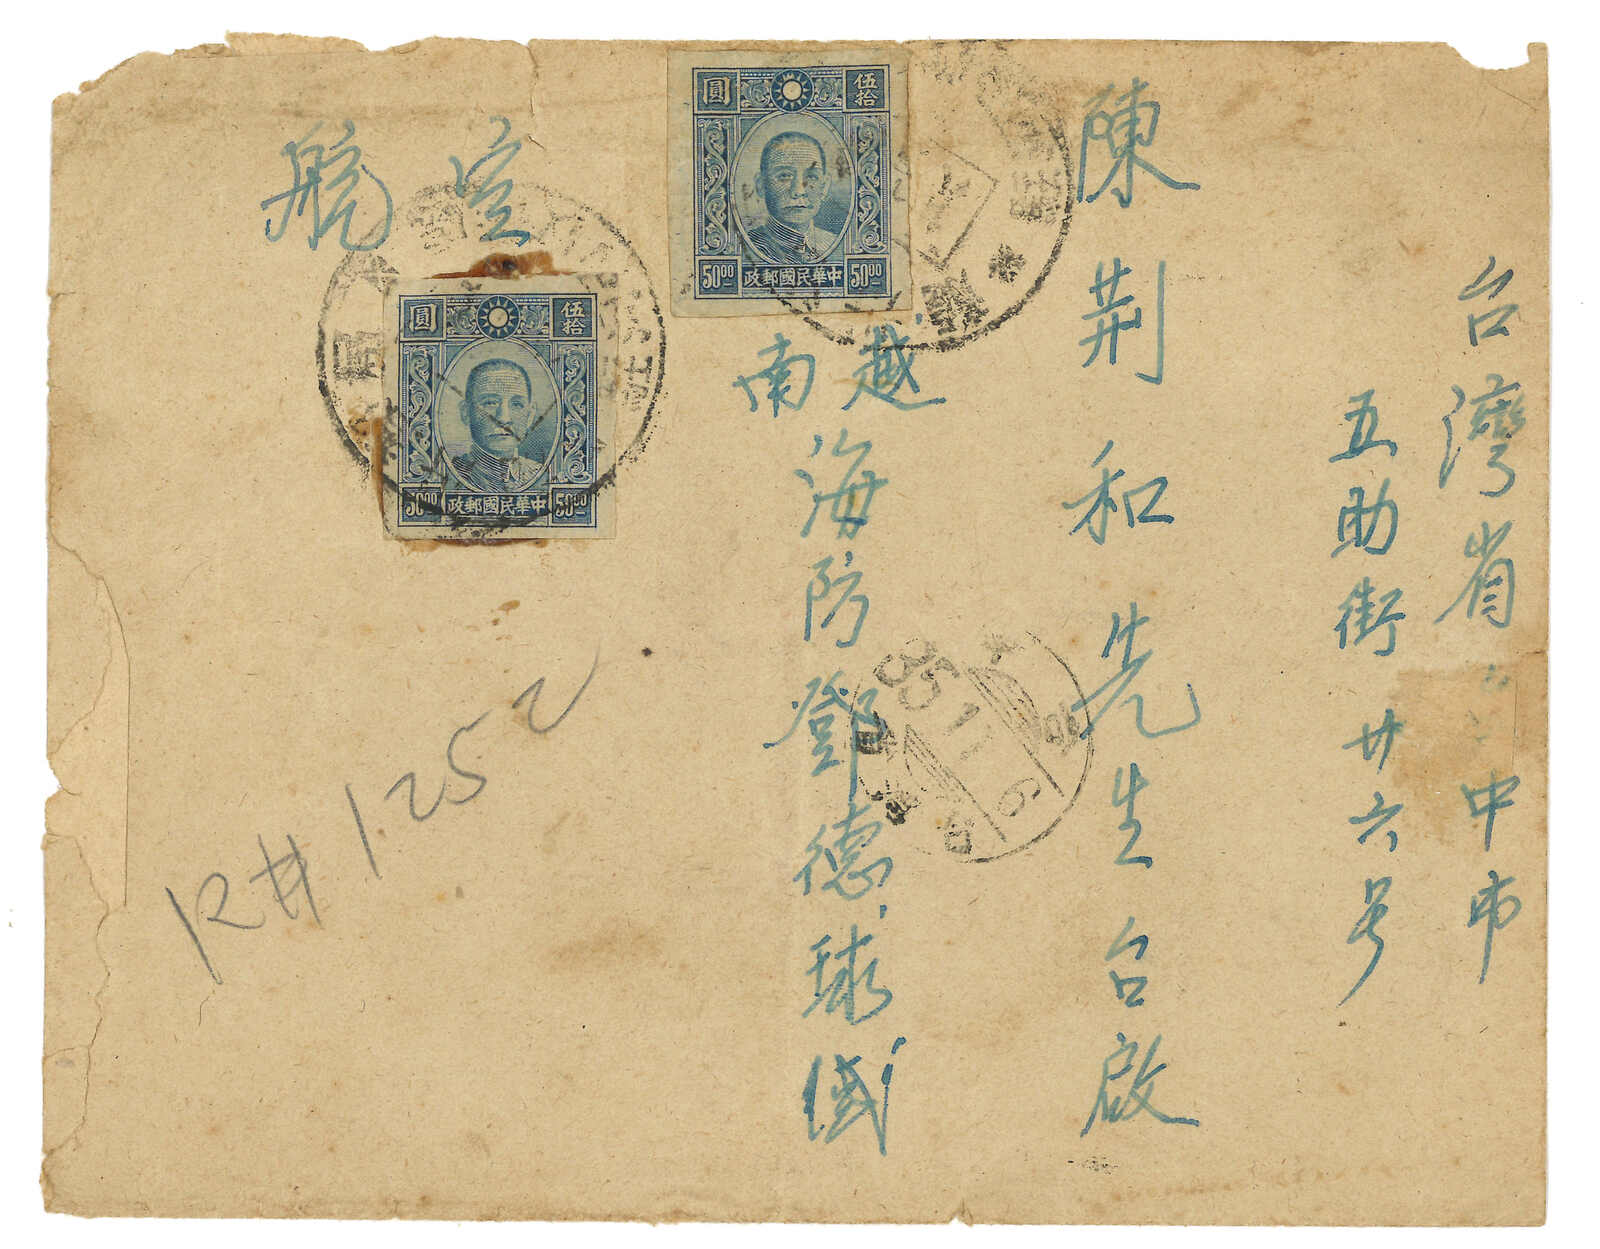 台灣省中市
五助街廿六号
陳荆和先生台啟
越南
海防鄧德球緘
航空
圓 伍拾
50⁰⁰ 中華民國郵政 50⁰⁰
圓 伍拾
50⁰⁰ 中華民國郵政 50⁰⁰
35 11 6
R# 1252